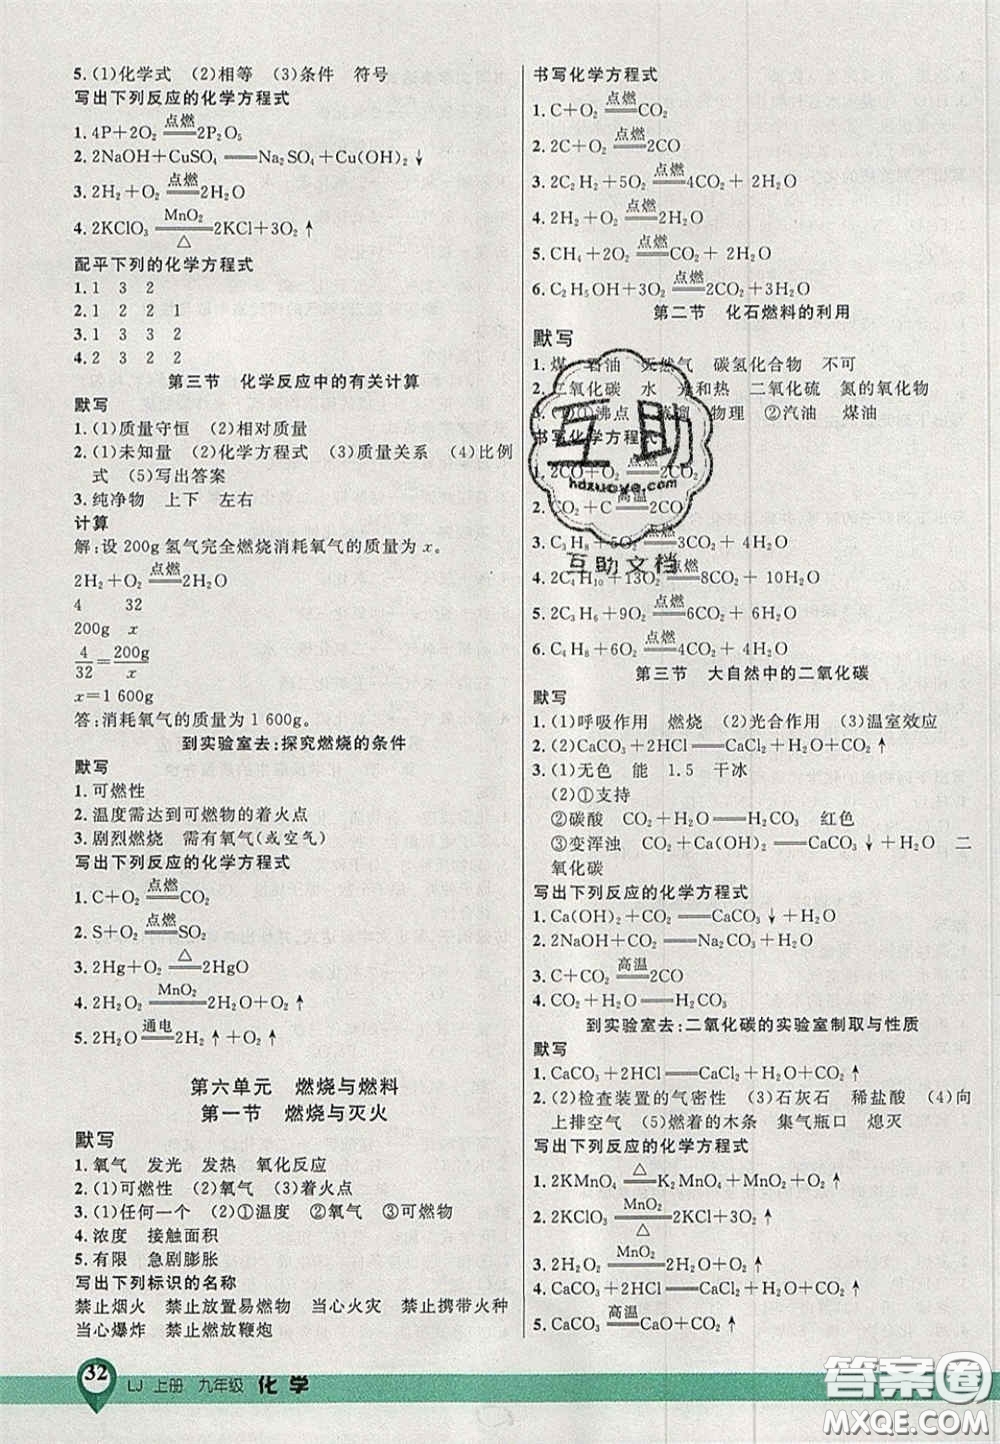 5. (1)化学式　(2)相等　(3)条件　符号
写出下列反应的化学方程式
1. 4P+2O₂ 点燃 2P₂O₅
2. 2NaOH+CuSO₄══Na₂SO₄+Cu(OH)₂↓
3. 2H₂+O₂ 点燃 2H₂O
4. 2KClO₃ MnO₂ △ 2KCl+3O₂↑
配平下列的化学方程式
1. 1　3　2
2. 1　2　2　1
3. 1　3　3　2
4. 2　2　3　2
第三节　化学反应中的有关计算
默写
1. (1)质量守恒　(2)相对质量
2. (1)未知量　(2)化学方程式　(3)质量关系　(4)比例
式　(5)写出答案
3. 纯净物　上下　左右
计算
解:设 200g 氢气完全燃烧消耗氧气的质量为 x。
2H₂+O₂ 点燃 2H₂O
4　32
200g　x
4/32=200g/x
x=1 600g
答:消耗氧气的质量为 1 600g。
到实验室去:探究燃烧的条件
默写
1. 可燃性
2. 温度需达到可燃物的着火点
3. 剧烈燃烧　需有氧气(或空气)
写出下列反应的化学方程式
1. C+O₂ 点燃 CO₂
2. S+O₂ 点燃 SO₂
3. 2Hg+O₂ △ 2HgO
4. 2H₂O₂ MnO₂ 2H₂O+O₂↑
5. 2H₂O 通电 2H₂↑+O₂↑
第六单元　燃烧与燃料
第一节　燃烧与灭火
默写
1. 氧气　发光　发热　氧化反应
2. (1)可燃性　(2)氧气　(3)着火点
3. (1)任何一个　(2)①温度　②氧气　③可燃物
4. 浓度　接触面积
5. 有限　急剧膨胀
写出下列标识的名称
禁止烟火　禁止放置易燃物　当心火灾　禁止携带火种
当心爆炸　禁止燃放鞭炮
书写化学方程式
1. C+O₂ 点燃 CO₂
2. 2C+O₂ 点燃 2CO
3. 2C₂H₂+5O₂ 点燃 4CO₂+2H₂O
4. 2H₂+O₂ 点燃 2H₂O
5. CH₄+2O₂ 点燃 CO₂+2H₂O
6. C₂H₅OH+3O₂ 点燃 2CO₂+3H₂O
第二节　化石燃料的利用
默写
1. 煤　石油　天然气　碳氢化合物　不可
2. 二氧化碳　水　光和热　二氧化硫　氮的氧化物
①沸点　蒸馏　物理　②汽油　煤油
书写化学方程式
1. 2CO+O₂ 点燃 2CO₂
2. CO₂+C 高温 2CO
3. C₃H₈+5O₂ 点燃 3CO₂+4H₂O
4. 2C₄H₁₀+13O₂ 点燃 8CO₂+10H₂O
5. 2C₃H₆+9O₂ 点燃 6CO₂+6H₂O
6. C₄H₈+6O₂ 点燃 4CO₂+4H₂O
第三节　大自然中的二氧化碳
默写
1. (1)呼吸作用　燃烧　(2)光合作用　(3)温室效应
2. (2)CaCO₃+2HCl══CaCl₂+H₂O+CO₂↑
3. (1)无色　能　1.5　干冰
(2)①支持
②碳酸　CO₂+H₂O══H₂CO₃　红色
③变浑浊　CO₂+Ca(OH)₂══CaCO₃↓+H₂O　二
氧化碳
写出下列反应的化学方程式
1. Ca(OH)₂+CO₂══CaCO₃↓+H₂O
2. 2NaOH+CO₂══Na₂CO₃+H₂O
3. C+CO₂ 高温 2CO
4. CO₂+H₂O══H₂CO₃
到实验室去:二氧化碳的实验室制取与性质
默写
1. CaCO₃+2HCl══CaCl₂+H₂O+CO₂↑
2. (2)检查装置的气密性　(3)石灰石　稀盐酸　(4)向
上排空气　(5)燃着的木条　集气瓶口　熄灭
写出下列反应的化学方程式
1. 2KMnO₄ △ K₂MnO₄+MnO₂+O₂↑
2. 2KClO₃ MnO₂ △ 2KCl+3O₂↑
3. 2H₂O₂ MnO₂ 2H₂O+O₂↑
4. CaCO₃+2HCl══CaCl₂+H₂O+CO₂↑
5. CaCO₃ 高温 CaO+CO₂↑
互助
hdzuoye.com
互助文档
32　LJ　上册　九年级　化学
答案圈
MXQE.COM